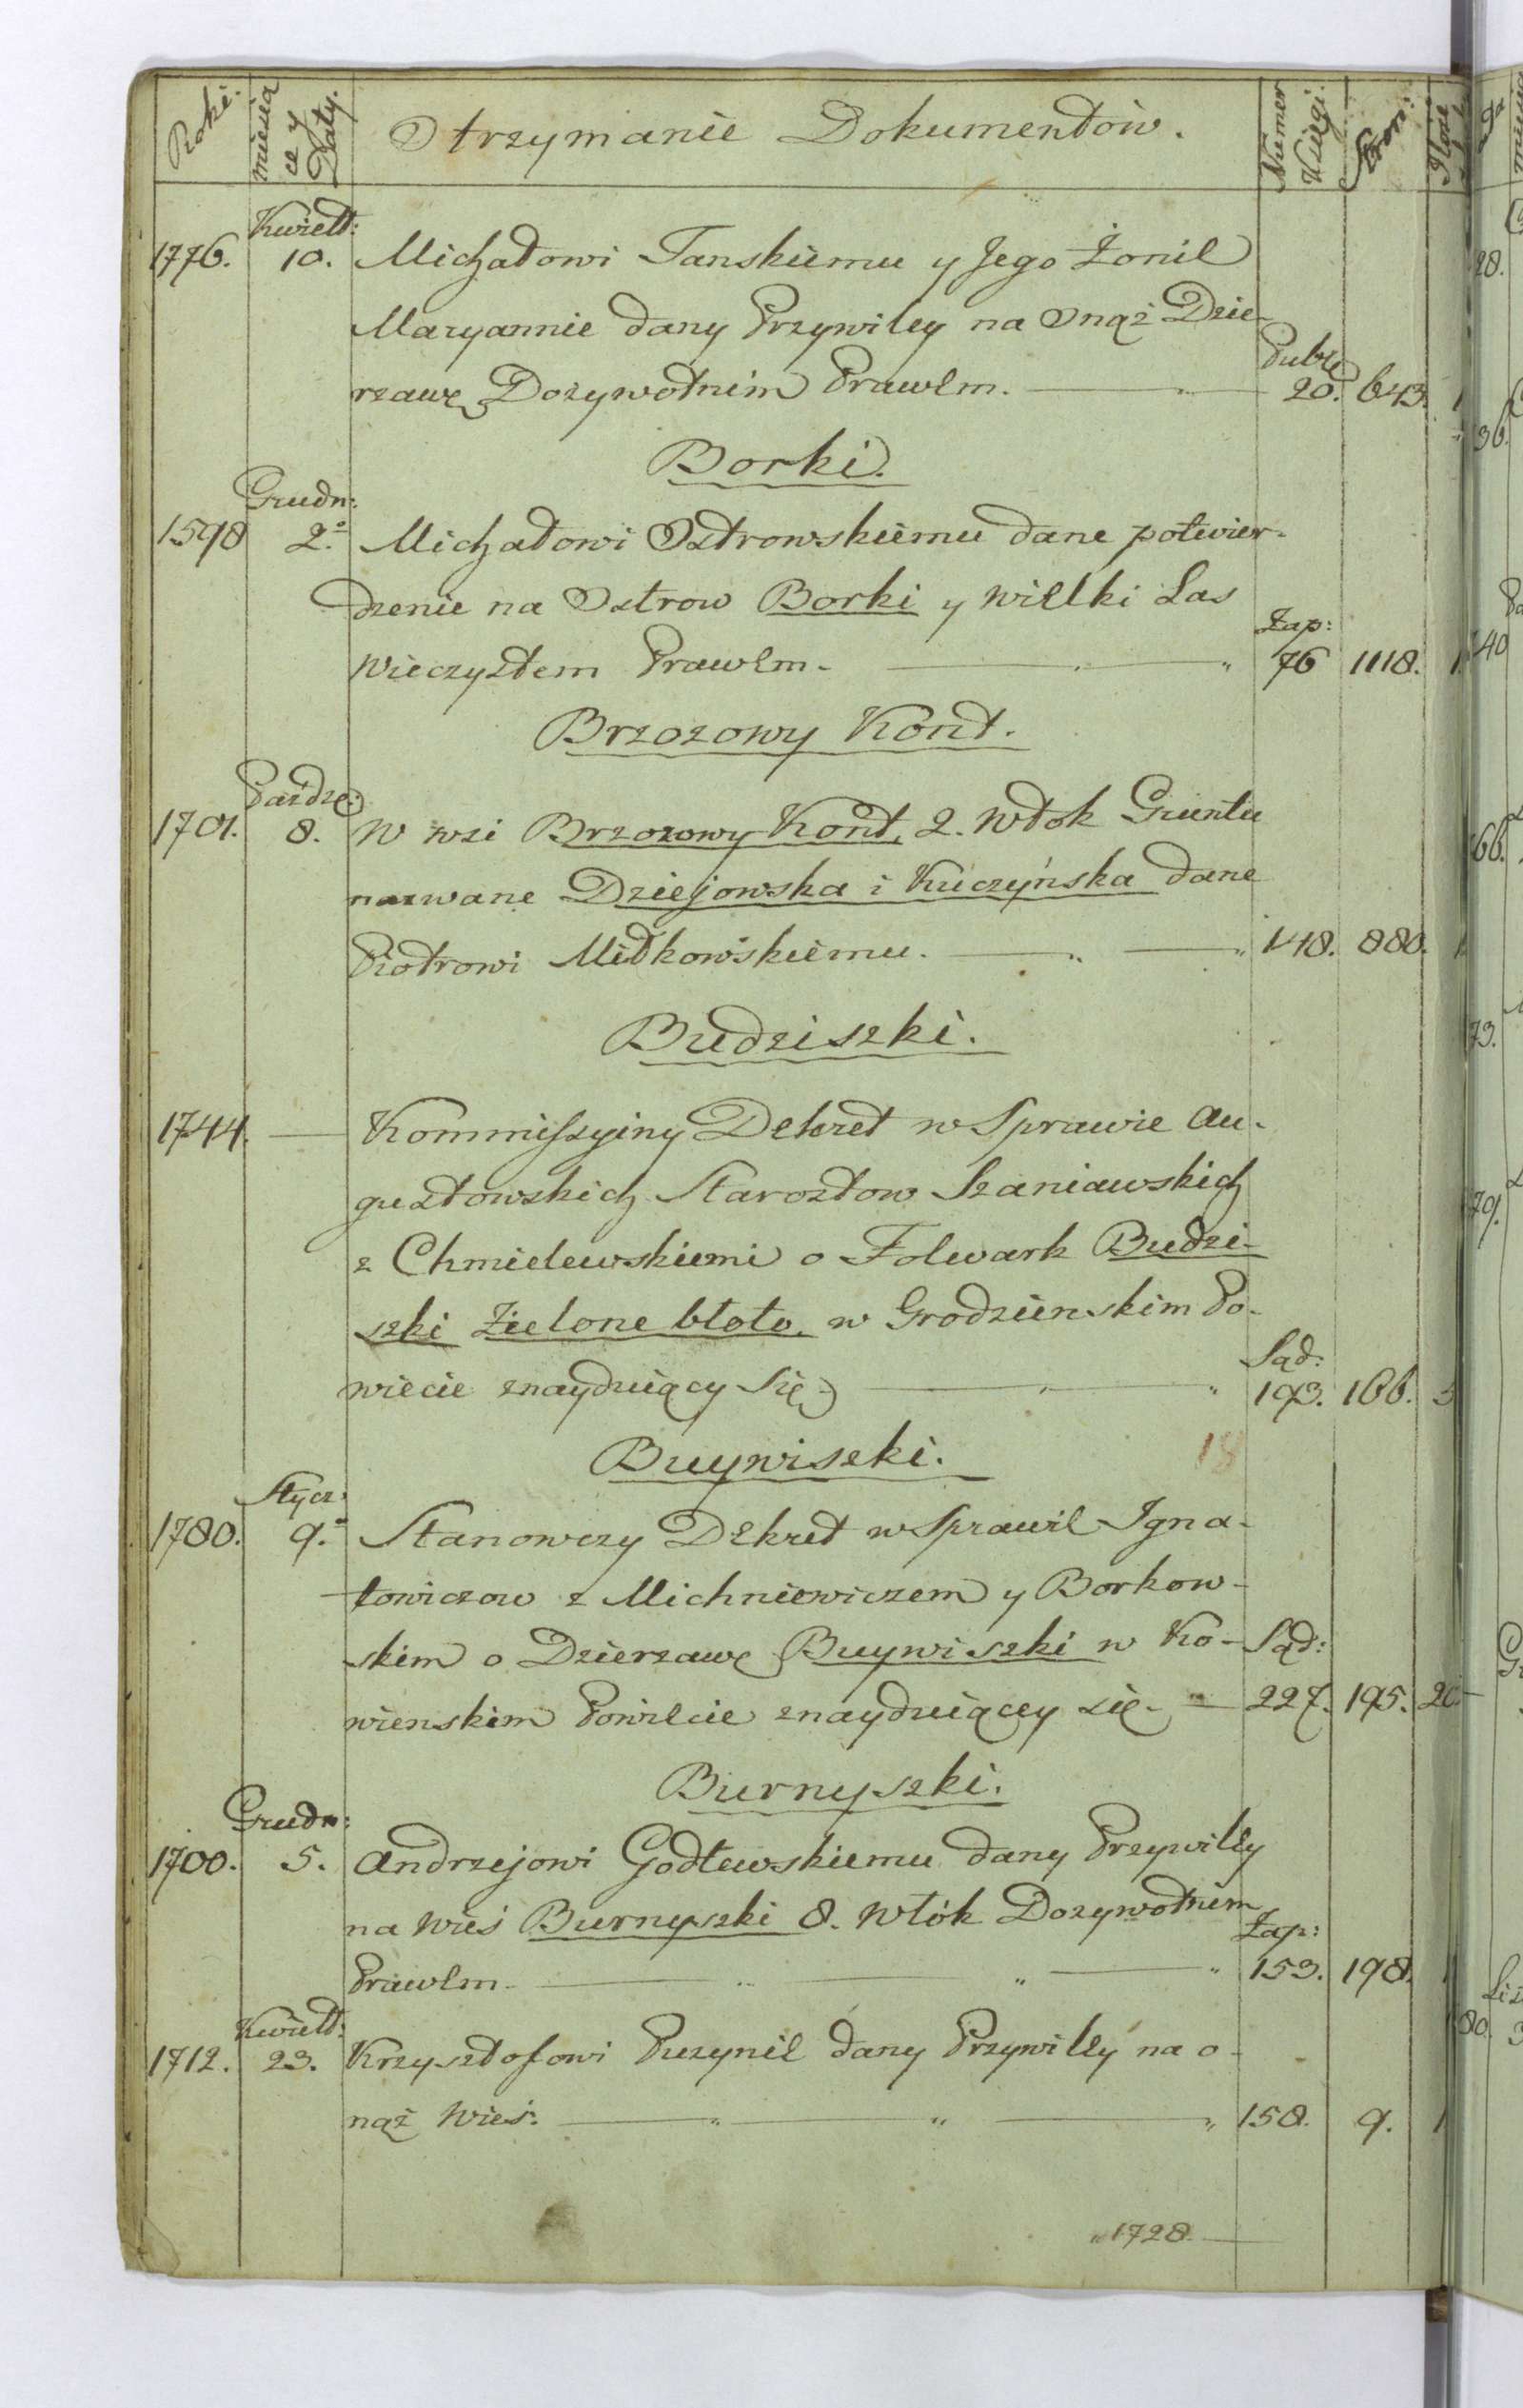 Roki. miesiące y Daty. Otrzymanie Dokumentów. Numer Xsięgi. Stron:
Kwiet:
1776. 10. Michałowi Tanskiemu y Jego Żonie
Maryannie dany Przywiley na Onąż Dzie-
Publ:
rzawę Dozywotnim Prawem. 20. 643. 1
Borki.
Grudn:
1578 2. Michałowi Ostrowskiemu dane potwier-
dzenie na Ostrow Borki y wielki Las
Zap:
wieczystem Prawem. 76 1118. 1.
Brzozowy Kont.
Paźdz:
1701. 8. W wsi Brzozowy Kont, 2. Włok Gruntu
nazwane Dziejowska i Kuczyńska dane
Piotrowi Mitkowskiemu. 148. 880. 1
Budziszki.
1744. — Kommissyiny Dekret w Sprawie Au-
gustowskich Starostow Szaniawskich
z Chmielewskiemi o Folwark Budzi-
szki Zielone błoto, w Grodzienskim Po-
Sąd:
wiecie znayduiący się 193. 166. 3
Buywiszki. 18
Stycz:
1780. 9. Stanowczy Dekret w Sprawie Igna-
towiczow z Michniewiczem y Borkow-
skim o Dzierzawę Buywiszki w Ko- Sąd:
wienskim Powiecie znayduiącey się. 227. 195. 20.
Burnyszki.
Grudn:
1700. 5. Andrzejowi Godlewskiemu dany Przywiley
na Wieś Burnyszki 8. Włók Dozywotniem
Zap:
Prawem. 153. 198. 1
Kwiet:
1712. 23. Krzysztofowi Puzynie dany Przywiley na o-
nąż Wieś. 158. 9. 1
1728.